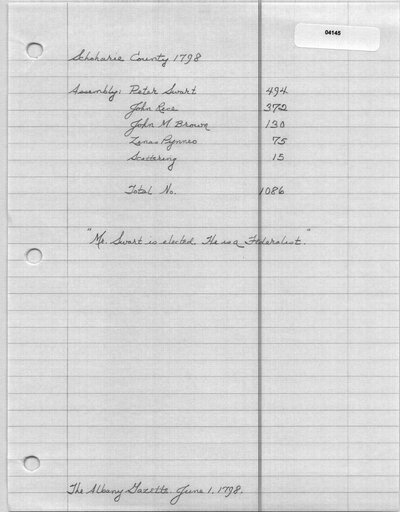 04145
Schoharie County 1798
Assembly: Peter Swart 494
John Rice 372
John M. Brown 130
Zenas Pynneo 75
Scattering 15
Total No. 1086
"Mr. Swart is elected. He is a Federalist."
The Albany Gazette. June 1, 1798.